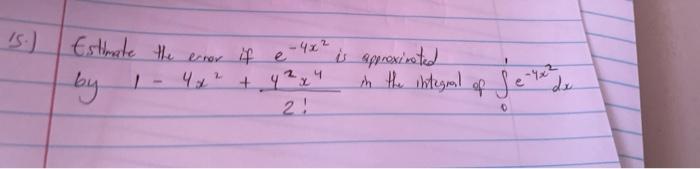 15.) Estimate the error if e^{-4x^2} is approximated
by 1 - 4x^2 + \frac{4^2x^4}{2!} in the integral of \int_0^1 e^{-4x^2} dx